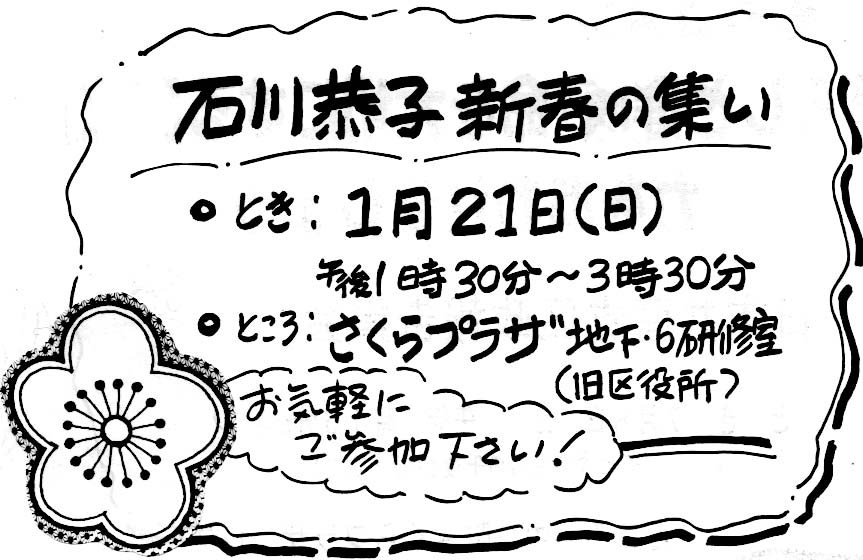 石川恭子新春の集い
とき：1月21日(日)
午後1時30分～3時30分
ところ：さくらプラザ地下・6研修室
(旧区役所)
お気軽に
ご参加下さい!